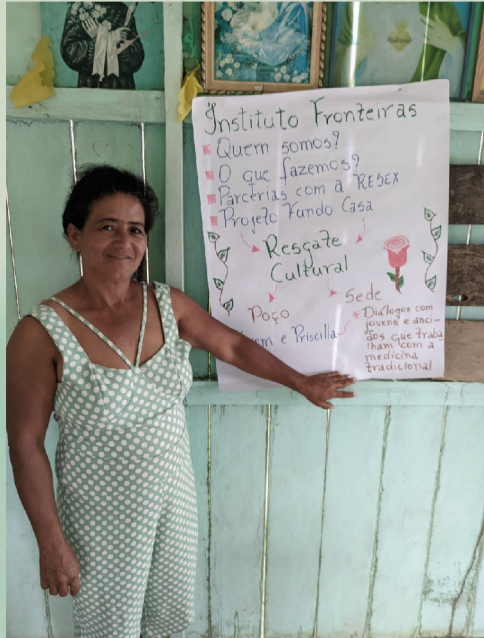 Instituto Fronteiras
Quem somos?
O que fazemos?
Parcerias com a RESEX
Projeto Fundo Casa
Resgate
Cultural
Poço
e Priscilla
Sede
* Diálogos com
jovens e anci-
ãos que traba
lham com a
medicina
tradicional